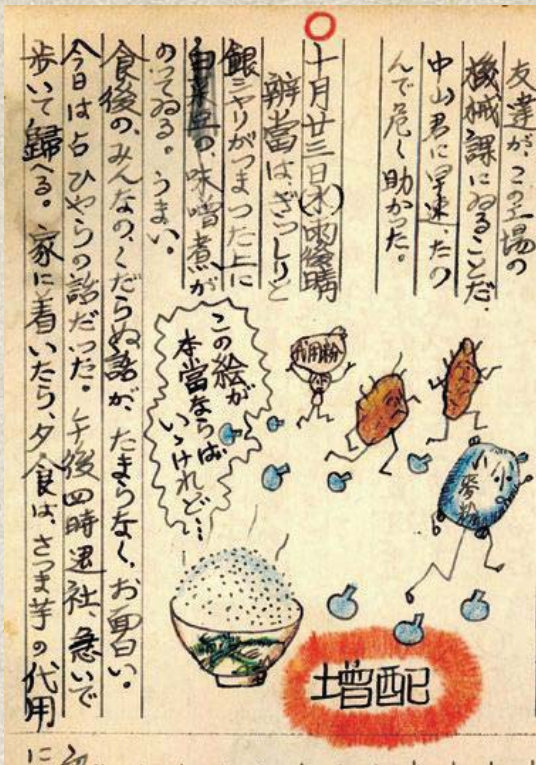 友達が、この工場の
機械課にゐることだ、
中山君に早速、たの
んで危く助かった。
十月廿三日(水)雨後晴
辨當は、ぎっしりと
銀シャリがつまつた上に
白菜の、味噌煮が
のってゐる。うまい。
食後の、みんなの、くだらぬ話が、たまらなく、お面白い。
今日は占ひやらの話だった。午後四時退社、急いで
歩いて歸へる。家に着いたら、夕食は、さつま芋の代用
小麥粉
代用粉
この絵が
本當ならば
いゝけれど…
増配
に